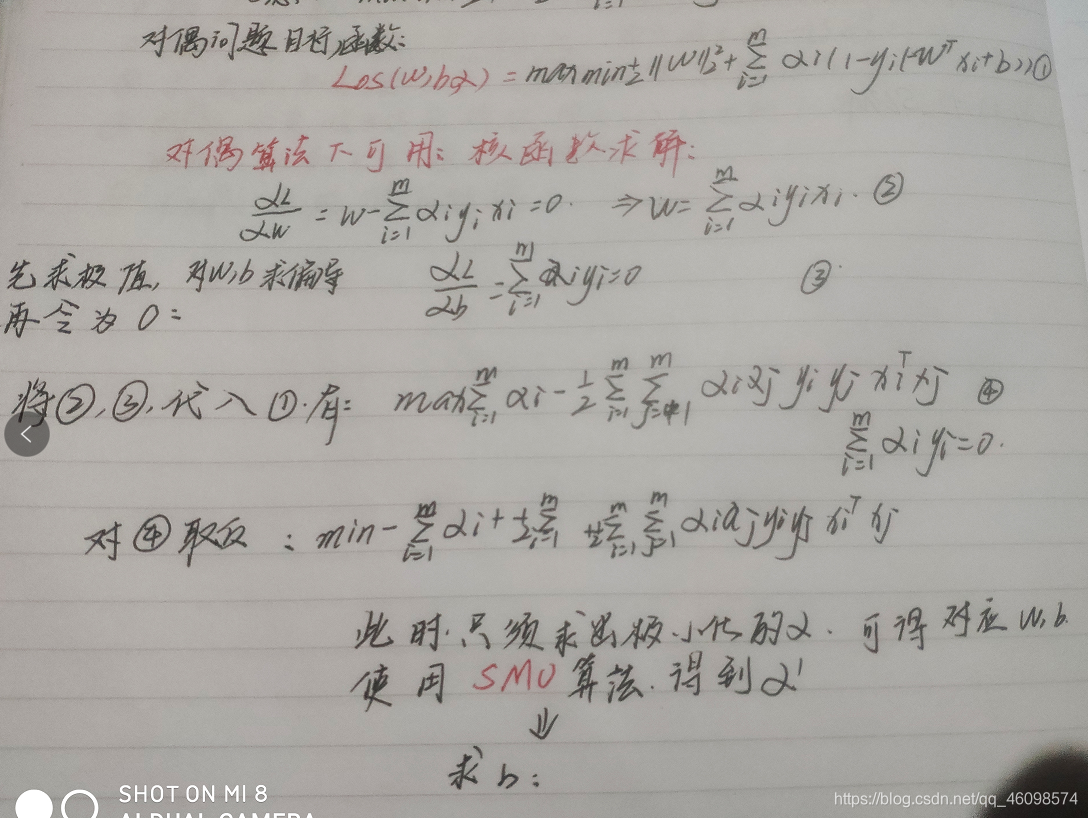 对偶问题目标函数:
Los(w,b,α) = max min ½||W||₂² + Σ_{i=1}^{m} αi(1-yi(-W^T xi+b)) ①
对偶算法不可用: 核函数求解:
αL/αw = w - Σ_{i=1}^{m} αiyixi = 0. ⇒ w = Σ_{i=1}^{m} αiyixi. ②
先求极值, 对w,b求偏导 αL/αb = Σ_{i=1}^{m} αiyi=0 ③
再令为0:
将②,③,代入①.有: max Σ_{i=1}^{m} αi - 1/2 Σ_{i=1}^{m} Σ_{j=1}^{m} αiαj yi yj xi^T xj ④
Σ_{i=1}^{m} αiyi=0.
对④取反: min - Σ_{i=1}^{m} αi + ½ Σ_{i=1}^{m} +½ Σ_{i=1}^{m} Σ_{j=1}^{m} αiαjyiyj xi^T xj
此时.只须求出极小化的α. 可得对应w,b.
使用SMO算法.得到α'
⇓
求b:
SHOT ON MI 8
https://blog.csdn.net/qq_46098574